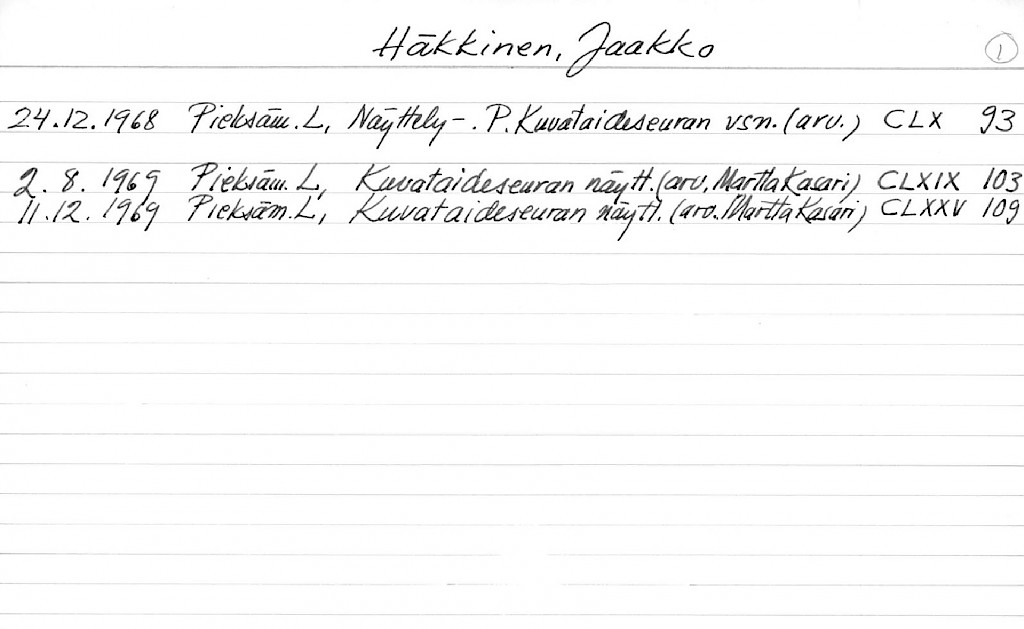 Häkkinen, Jaakko 1
24.12.1968 Pieksäm. L, Näyttely-. P. Kuvataideseuran vsn. (arv.) CLX 93
2. 8. 1969 Pieksäm. L, Kuvataideseuran näytt. (arv. Martta Kasari) CLXIX 103
11.12.1969 Pieksäm. L, Kuvataideseuran näytt. (arv. Martta Kasari) CLXXV 109